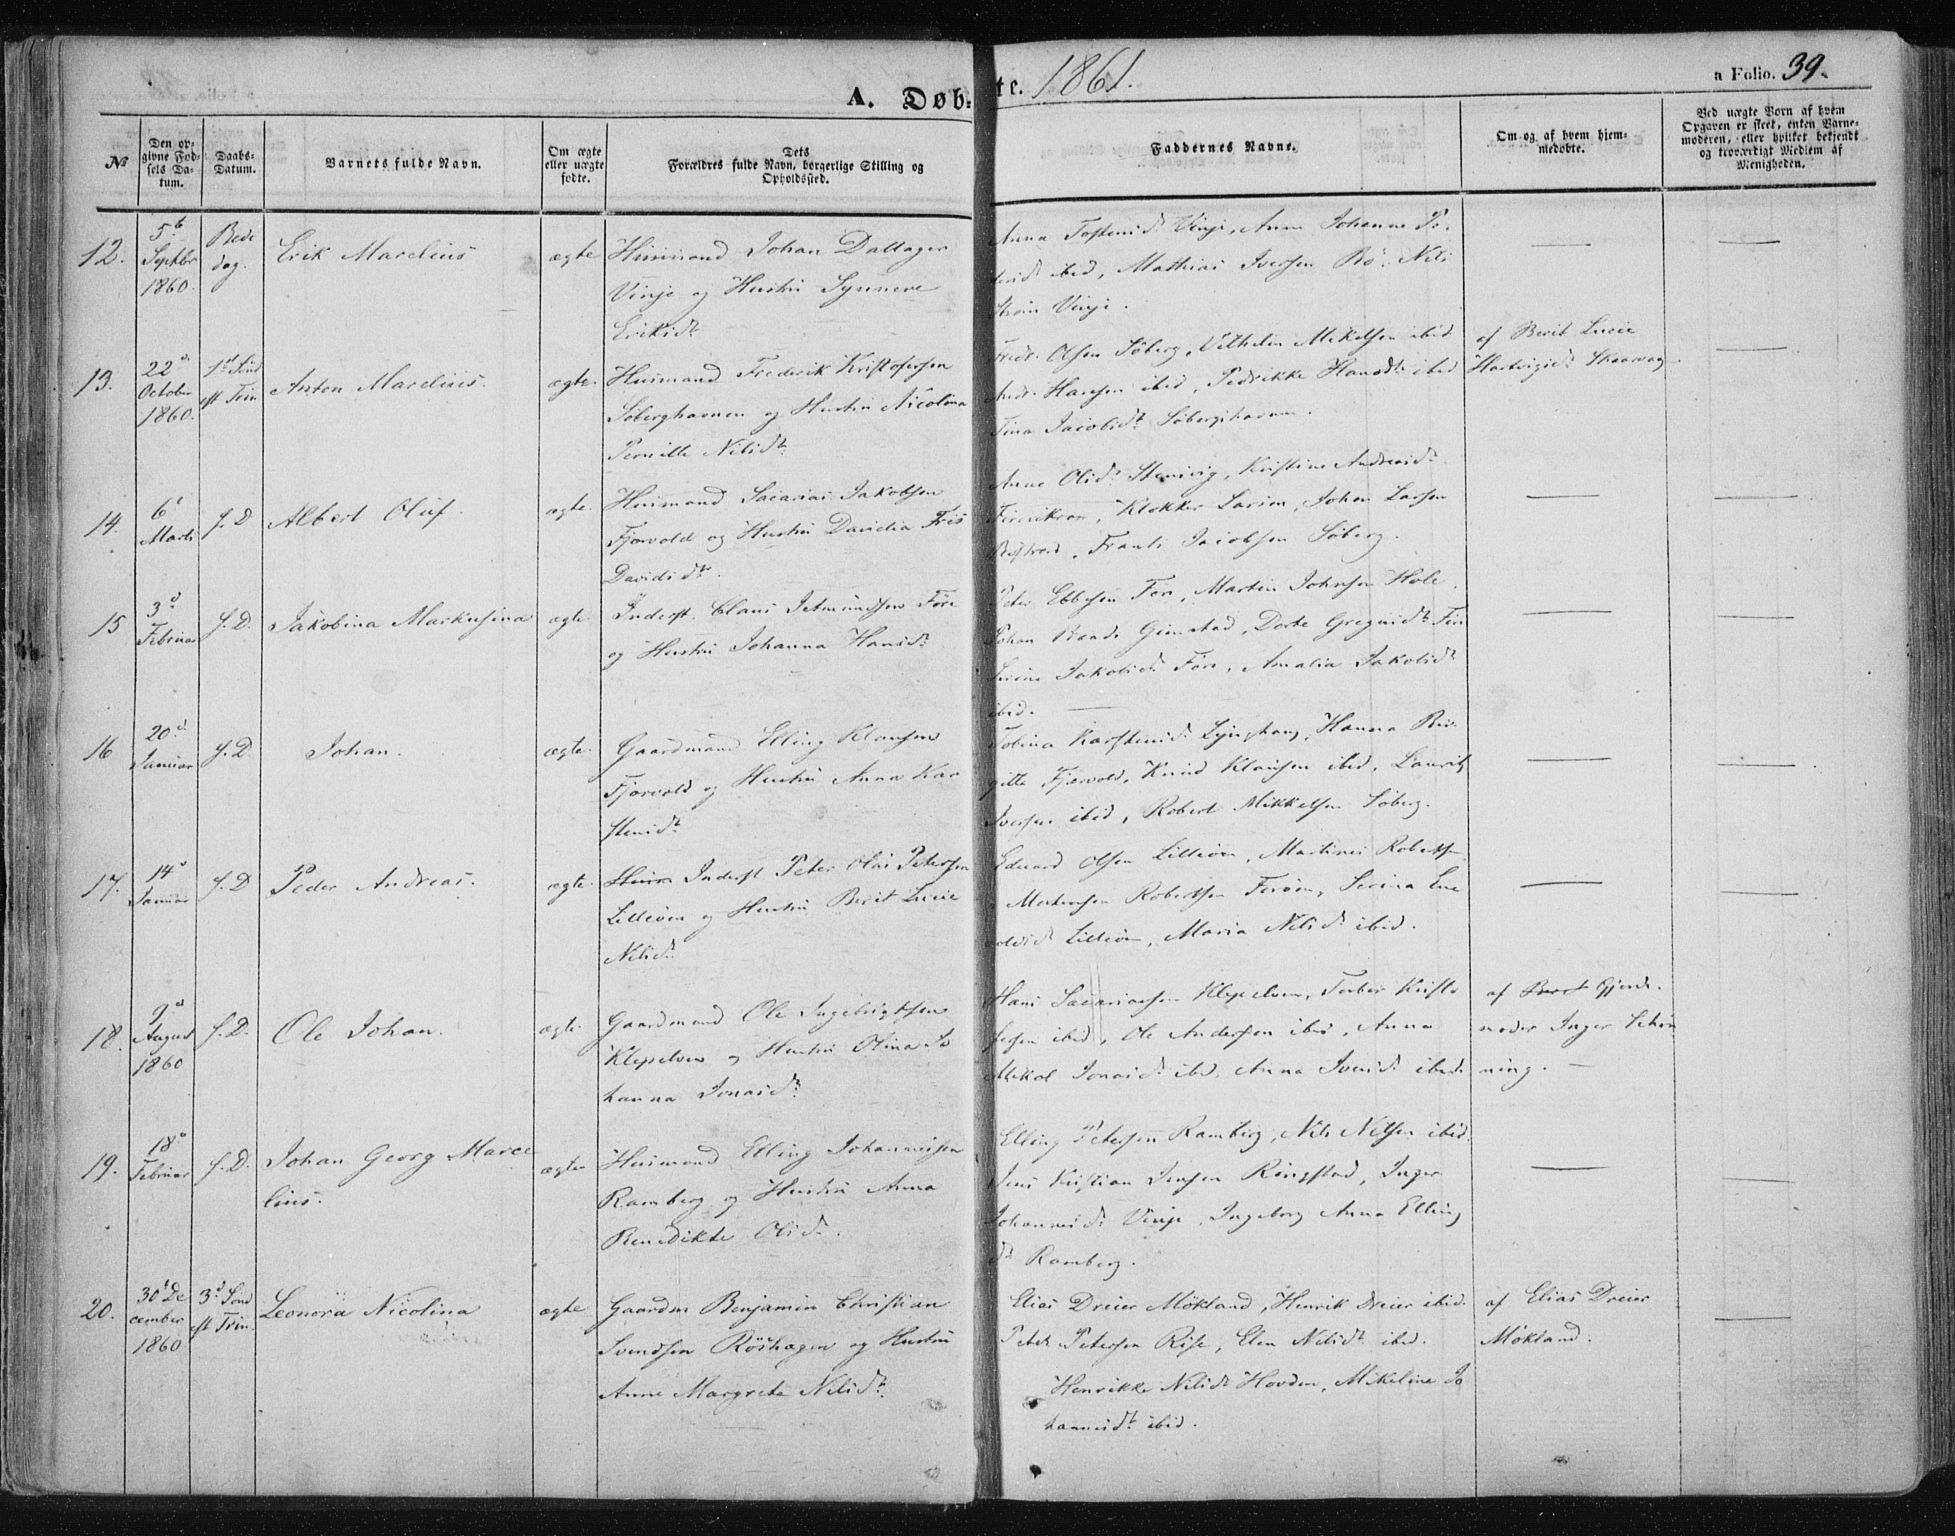 A. Døbte. 1861.
a Folio. 39.
No
Den opgivne Fødsels Datum.
Daabs-Datum.
Barnets fulde Navn.
Om ægte eller uægte fødte.
Dets Forældres fulde Navn, borgerlige Stilling og Opholdssted.
Faddernes Navne.
Om og af hvem hjemmedøbte.
Ved uægte Børn af hvem Opgaven er skeet, enten Barnemoderen, eller hvilket bekjendt og troværdigt Medlem af Menigheden.
12. 5te Septbr 1860. Bededag. Erik Marelius ægte Huusmand Johan Dallager
Vinje og Hustru Synneve
Eriksdt.
Anna Tostensdt Vinje, Anne Johanne
ibid, Mathias Iversen Bø, Nils
Vinje.
13. 22d October 1860. 1st Sønd eft Trin Anton Marelius. ægte. Huusmand Frederik Kristofersen
Søberghavnen og Hustru Nicolina
Pernille Nilsdt.
Fredr. Olsen Søberg, Vilhelm Mikelsen ibid
Andr. Hansen ibid, Pedrikke Hansdt. ibid
Tina Jacobsdt. Søberghavnen.
af Berit Lucie
Hartvigsdt. Skaarvag
14. 6t Marts f. D Albert Oluf. ægte. Huusmand Sacarias Jakobsen
Fjærvold og Hustru Davidia Friis
Davidsdt.
Anne Olsdt. Steinvig, Kristine Andreasdt.
Klokker Larsen, Johan Larsen
Frants Jacobsen Søberg.
15 3d Februar f. D. Jakobina Markusina ægte. Inderst. Claus Jetmundsen Føre
og Hustru Johanna Hansdt.
Peter Ebbesen Føre, Martin Johnsen Hole.
Johan Gimstad, Dorte Gregusdt. Føre
Jakobsdt. Føre, Amalia Jakobsdt.
ibid.
16 20d Januar f. D Johan. ægte. Gaardmand Elling Klausen
Fjærvold og Hustru Anna Kar
stensdt.
Tobina Karstensdt. Lynghaug, Hanna Bir
gitte Fjærvold, Knud Klausen ibid, Laurits
Iversen ibid, Robert Mikkelsen Søberg.
17. 14d Januar f. D Peder Andreas. ægte. Inderst Peter Olai Petersen
Lilleøen og Hustru Berit Lucie
Nilsdt.
Eduard Olsen Lilleøen, Martines Robertsen
Robertsen Lilleøen, Maria Nilsdt ibid.
18. 9d August 1860 f. D. Ole Johan. ægte. Gaardmand Ole Ingebrigtsen
Klepelven og Hustru Olina Jo
hanna Jonasdt.
Hans Sacariasen Klepelven, Tarber Kristo
fersen ibid, Ole Andersen ibid, Anna
Mikal Jonasdt. ibid, Anna Iversdt. ibid.
af Gjorde
moder Inger Schøn
ning. —
19. 18d Februar f. D. Johan Georg Marce
lius. ægte Huusmand Elling Johannesen
Ramberg og Hustru Anna
Benedikte Olsdt.
Elling Petersen Ramberg, Nils Nilsen ibid.
Jens Kristian Jensen Ringstad, Inger
Johannesdt. Vinje, Ingeborg Anna Elling
dt. Ramberg.
20. 30d December 1860 3d Sønd eft Trin. Leonora Nicolina ægte Gaardm Benjamin Christian
Svendsen Røshagen og Hustru
Anne Margrete Nilsdt.
Elias Dreier Møkland, Henrik Dreier ibid.
Peter Petersen Rise, Elen Nilsdt. ibid.
Henrikke Nilsdt Hovden, Mikeline Jo
hannesdt. ibid.
af Elias Dreier
Møkland.